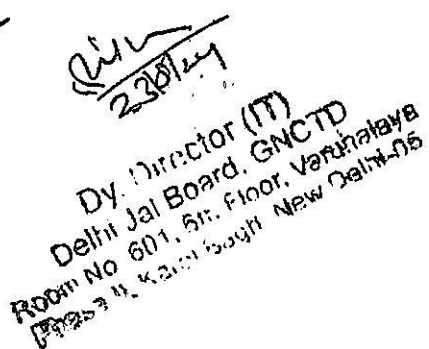 Dy. Director (IT)
Delhi Jal Board, GNCTD
Room No 601, 6th Floor, Varunalaya
Phase II, Karol Bagh New Delhi-05